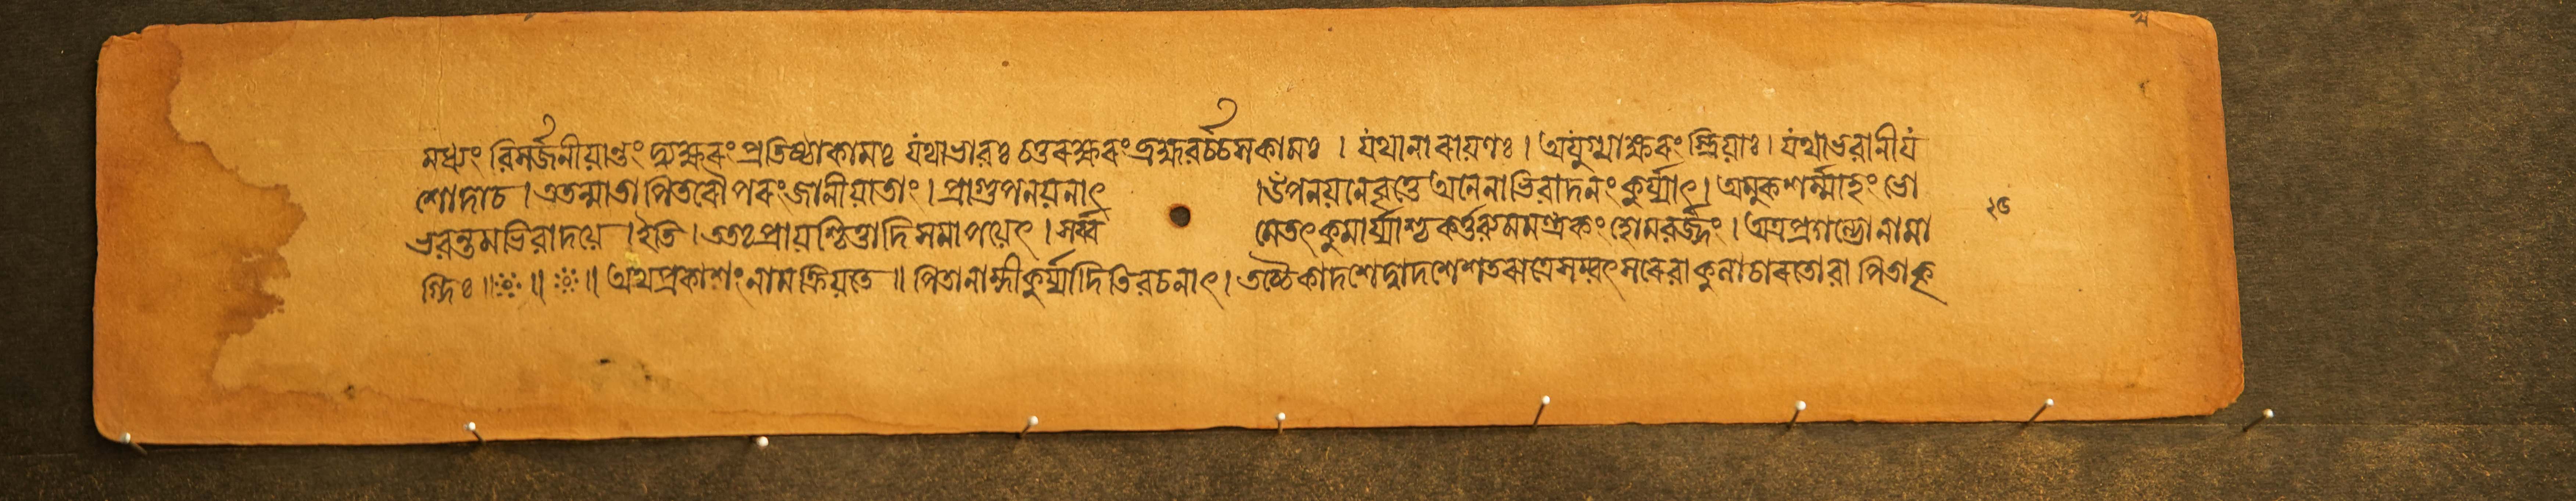 মধ্যং বিসর্জনীয়ান্তং দ্ব্যক্ষরং প্রতিষ্ঠাকামঃ যথাভবঃ চতুরক্ষরং ব্রহ্মবর্চ্চসকামঃ । যথানারায়ণঃ । অযুগ্মাক্ষরং স্ত্রিয়াঃ । যথাভবানীয
শোদাচ । এতন্মাতাপিতরৌপরংজানীয়াতাং । প্রাগুপনয়নাৎ । উপনয়নেবৃত্তে অনেনাভিবাদনং কুর্য্যাৎ । অমুকশর্ম্মাহং ভো
ভবন্তমভিবাদয়ে । ইতি । ততঃ প্রায়শ্চিত্তাদিসমাপয়েৎ । সর্ব্ব মেতৎকুমার্য্যাশ্চ কর্ত্তব্যমমন্ত্রকং হোমবর্জ্জং । অত্রপ্রশস্তোনামা
গ্নিঃ ॥ ॥ ॥ অথপ্রকাশংনামক্রিয়তে ॥ পিতানাম্নীকুর্য্যাদিতিবচনাৎ । তচ্চৈকাদশেদ্বাদশেশতরাত্রেসম্বৎসরেবা কুলাচারতোবা পিতাকৃ
২৬